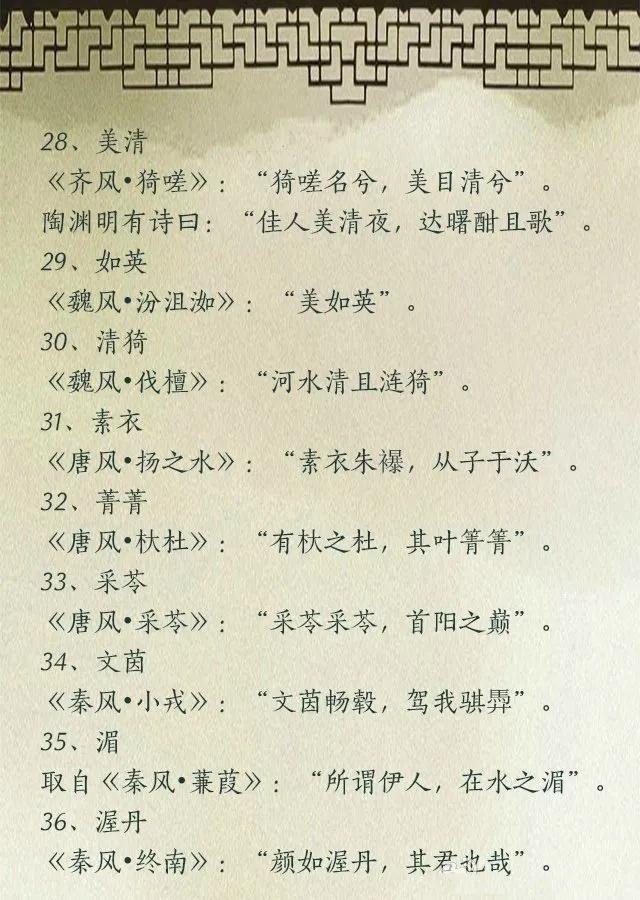 28、美清
《齐风•猗嗟》：“猗嗟名兮，美目清兮”。
陶渊明有诗曰：“佳人美清夜，达曙酣且歌”。
29、如英
《魏风•汾沮洳》：“美如英”。
30、清猗
《魏风•伐檀》：“河水清且涟猗”。
31、素衣
《唐风•扬之水》：“素衣朱襮，从子于沃”。
32、菁菁
《唐风•杕杜》：“有杕之杜，其叶箐箐”。
33、采苓
《唐风•采苓》：“采苓采苓，首阳之巅”。
34、文茵
《秦风•小戎》：“文茵畅毂，驾我骐馵”。
35、湄
取自《秦风•蒹葭》：“所谓伊人，在水之湄”。
36、渥丹
《秦风•终南》：“颜如渥丹，其君也哉”。